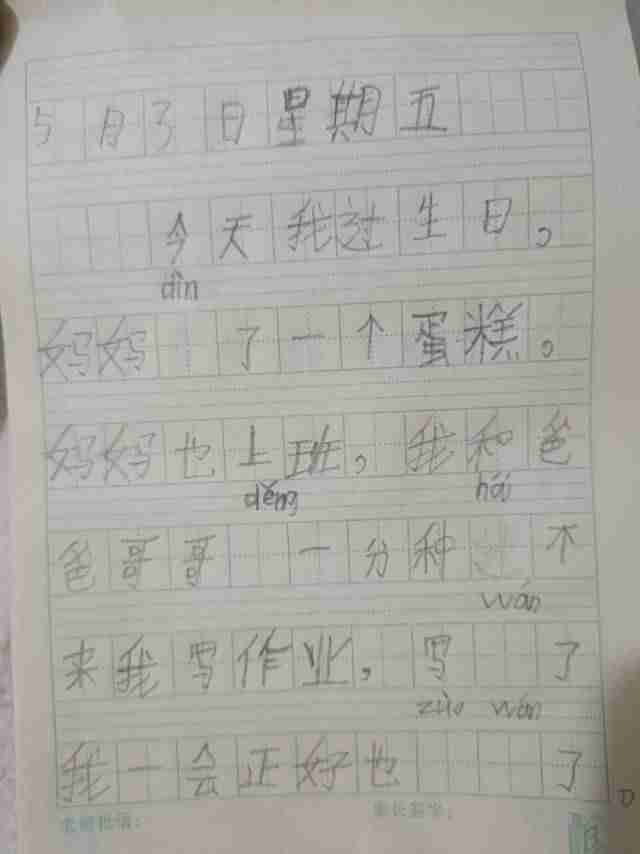 5月3日星期五
今天我过生日。
dìn
妈妈 了一个蛋糕。
妈妈也上班,我和爸
děng hái
爸哥哥 一分种 不
wán
来我写作业,写 了
zùo wán
我一会正好也 了。
老师批语: 家长签字: